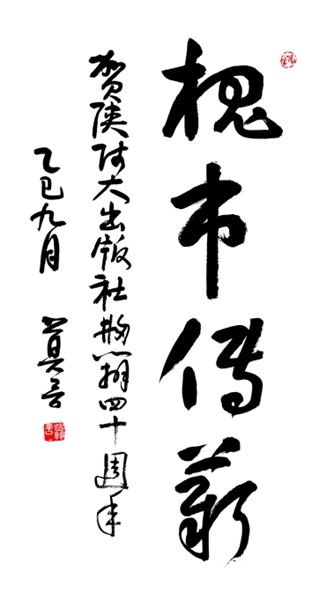 槐市傳薪
贺陕师大出版社成立四十週年
乙巳九月 莫言